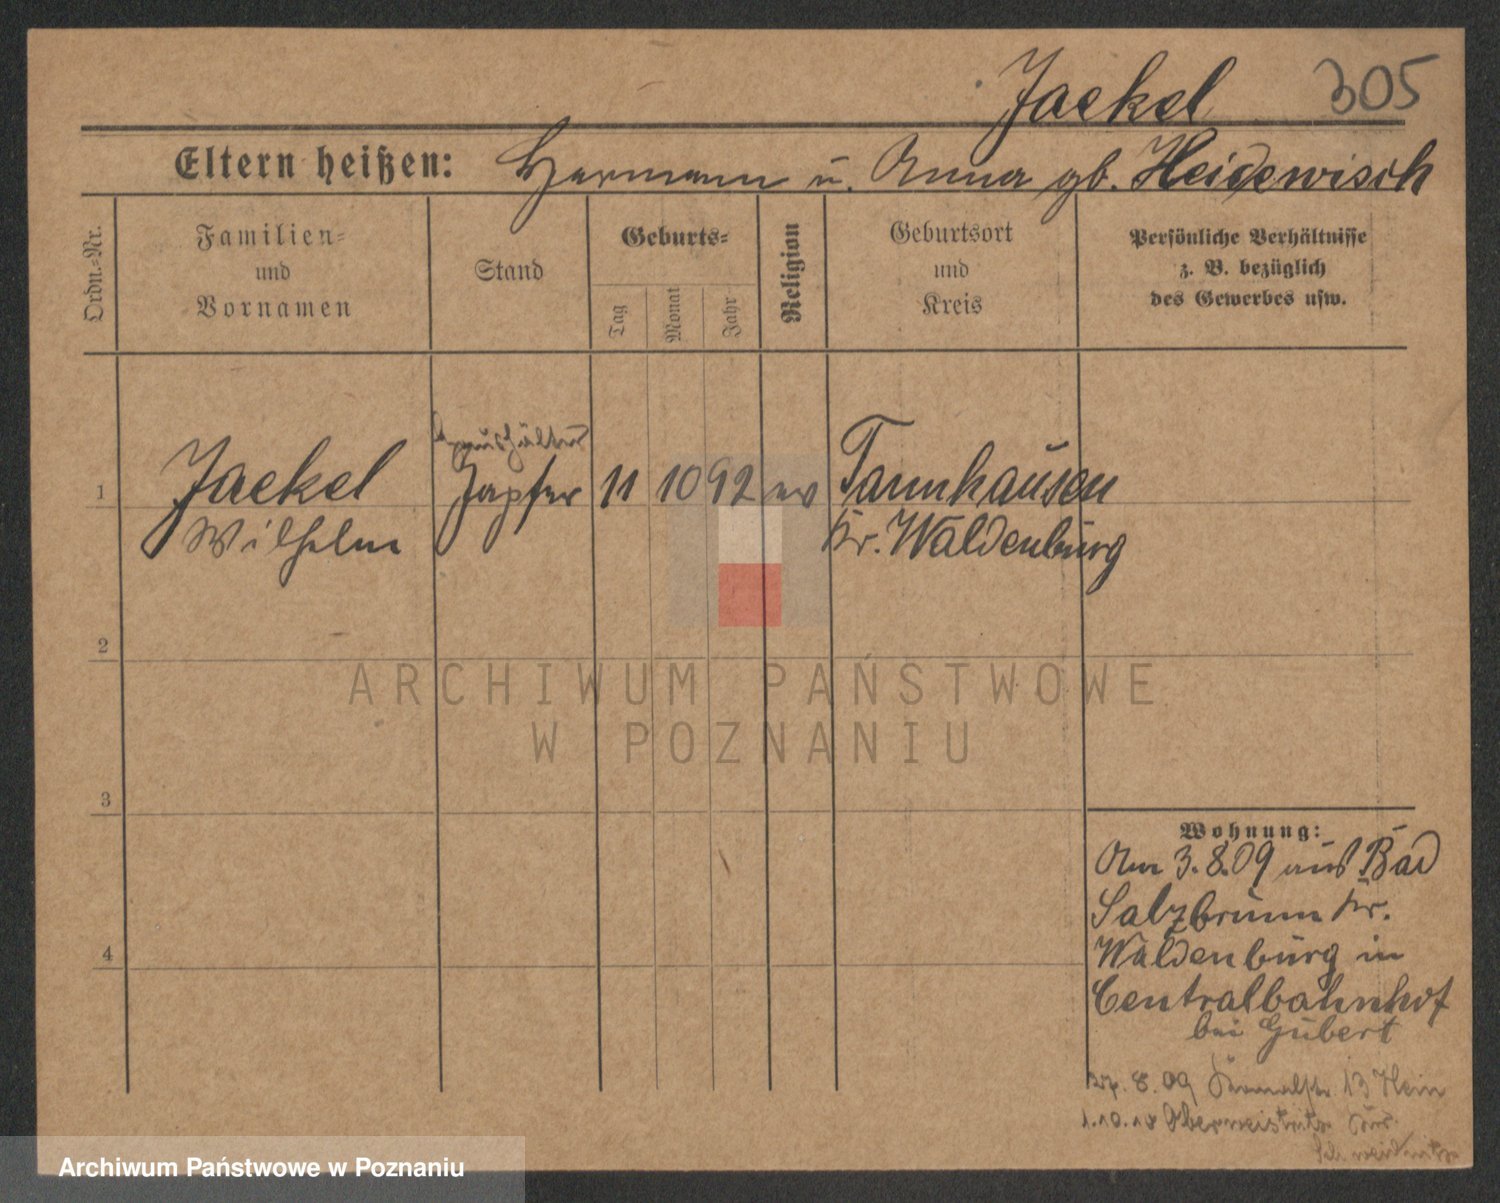 Jaekel 305
Eltern heißen: Hermann u. Anna gb. Heidewisch
Ordn.-Nr.
Familien-
und
Vornamen
Stand
Geburts-
Tag
Monat
Jahr
Religion
Geburtsort
und
Kreis
Persönliche Verhältnisse
z. B. bezüglich
des Gewerbes usw.
Haushälter
1 Jaekel Zapfer 11 10 92 ev Tannhausen
Wilhelm Kr. Waldenburg
2
ARCHIWUM PAŃSTWOWE
W POZNANIU
3
Wohnung:
Am 3.8.09 aus Bad
Salzbrunn Kr.
4
Waldenburg in
Centralbahnhof
bei Gubert
8.09 Kanalstr. 13 Hein
1.10.10 Oberweistritz
Schweidnitz
Archiwum Państwowe w Poznaniu